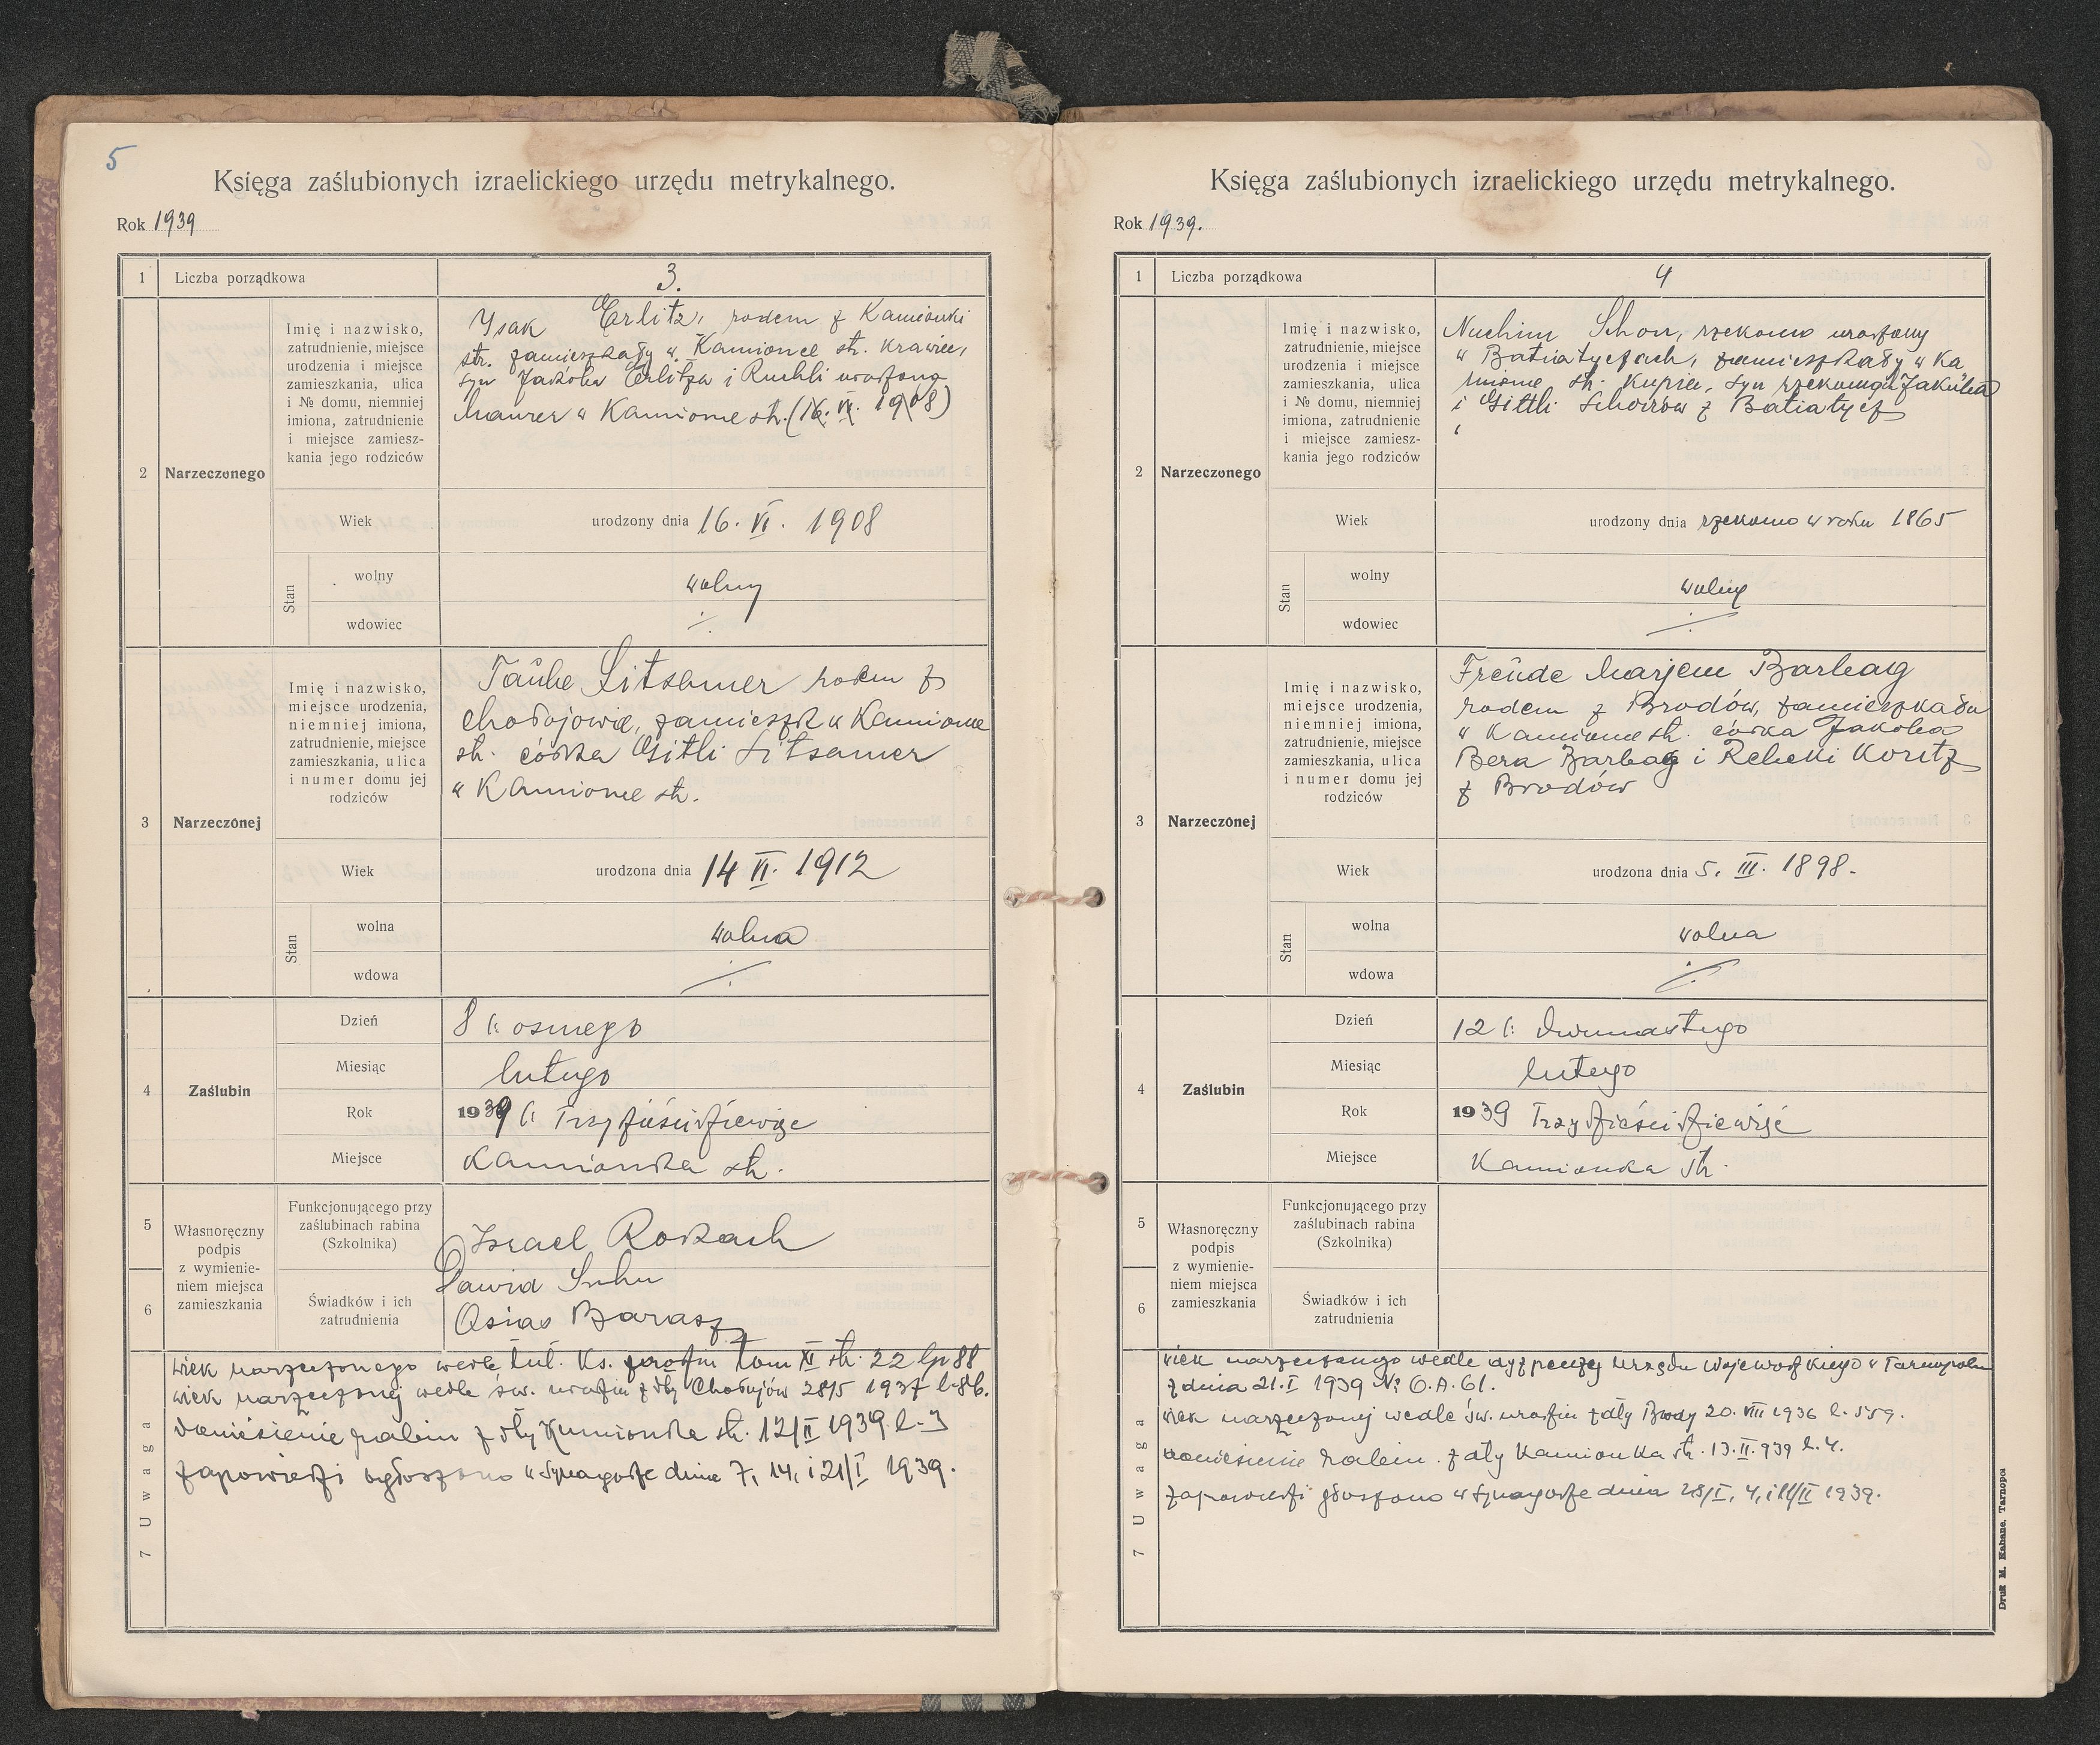 5
Księga zaślubionych izraelickiego urzędu metrykalnego.
Rok 1939
1 Liczba porządkowa 3.
2 Narzeczonego
Imię i nazwisko,
zatrudnienie, miejsce
urodzenia i miejsce
zamieszkania, ulica
i № domu, niemniej
imiona, zatrudnienie
i miejsce zamiesz-
kania jego rodziców
Ysak Erlitz, rodem z Kamionki
str. zamieszkały w Kamionce str. krawiec,
syn Jakóba Erlitza i Ruchli urodzona
Maurer w Kamionce str. (16. VI. 1908)
Wiek urodzony dnia 16. VI. 1908
Stan
wolny wolny
wdowiec
3 Narzeczonej
Imię i nazwisko,
miejsce urodzenia,
niemniej imiona,
zatrudnienie, miejsce
zamieszkania, ulica
i numer domu jej
rodziców
Taube Litsamer rodem z
Chołojowie, zamieszk w Kamionce
str. córka Gitli Litsamer
w Kamionce str.
Wiek urodzona dnia 14 VI. 1912
Stan
wolna wolna
wdowa
4 Zaślubin
Dzień 8 (: osmego
Miesiąc lutego
Rok 1939 (:
Miejsce Kamionka str.
5
6
Własnoręczny
podpis
z wymienie-
niem miejsca
zamieszkania
Funkcjonującego przy
zaślubinach rabina
(Szkolnika)
Israel Rokach
Świadków i ich
zatrudnienia
Dawid
Osias Barasz
7 Uwaga
wiek narzeczonego wedle tut. Ks. urodzin tom XI str. 22 lp 88
wiek narzeczonej wedle św. urodzin z dty Chołojów 28/5 1937 l. 86.
doniesienie rabin z dty Kamionka str. 12/II 1939 l. 3
zapowiedzi ogłoszono w Synagodze dnia 7, 14, i 21/I 1939.
Księga zaślubionych izraelickiego urzędu metrykalnego.
Rok 1939.
1 Liczba porządkowa 4
2 Narzeczonego
Imię i nazwisko,
zatrudnienie, miejsce
urodzenia i miejsce
zamieszkania, ulica
i № domu, niemniej
imiona, zatrudnienie
i miejsce zamiesz-
kania jego rodziców
Nuchim Schorr, rzekomo urodzony
w Batiatyczach, zamieszkały w Ka
mionce str. kupiec, syn rzekomego Jakuba
i Gittli Schorrów z Batiatycz
Wiek urodzony dnia rzekomo w roku 1865
Stan
wolny wolny
wdowiec
3 Narzeczonej
Imię i nazwisko,
miejsce urodzenia,
niemniej imiona,
zatrudnienie, miejsce
zamieszkania, ulica
i numer domu jej
rodziców
Freude Marjem Barbag
rodem z Brodów, zamieszkała
w Kamionce str. córka Jakoba
Bera Barbag i Rebeki Koritz
z Brodów
Wiek urodzona dnia 5. III. 1898.-
Stan
wolna wolna
wdowa
4 Zaślubin
Dzień 12 (: dwunastego
Miesiąc lutego
Rok 1939
Miejsce Kamionka str.
5
6
Własnoręczny
podpis
z wymienie-
niem miejsca
zamieszkania
Funkcjonującego przy
zaślubinach rabina
(Szkolnika)
Świadków i ich
zatrudnienia
7 Uwaga
wiek narzeczonego wedle dyspenzy Urzędu Wojewodzkiego w Tarnopolu
z dnia 21. I 1939 № O.A. 61.
wiek narzeczonej wedle św. urodzin z dty Brody 20. VIII 1936 l. 559.
doniesienie rabin. z dty Kamionka str. 13. II. 939 l. 4.
zapowiedzi głoszono w Synagodze dnia 28/I, 4, i 11/II 1939.
Druk M. Kahane, Tarnopol